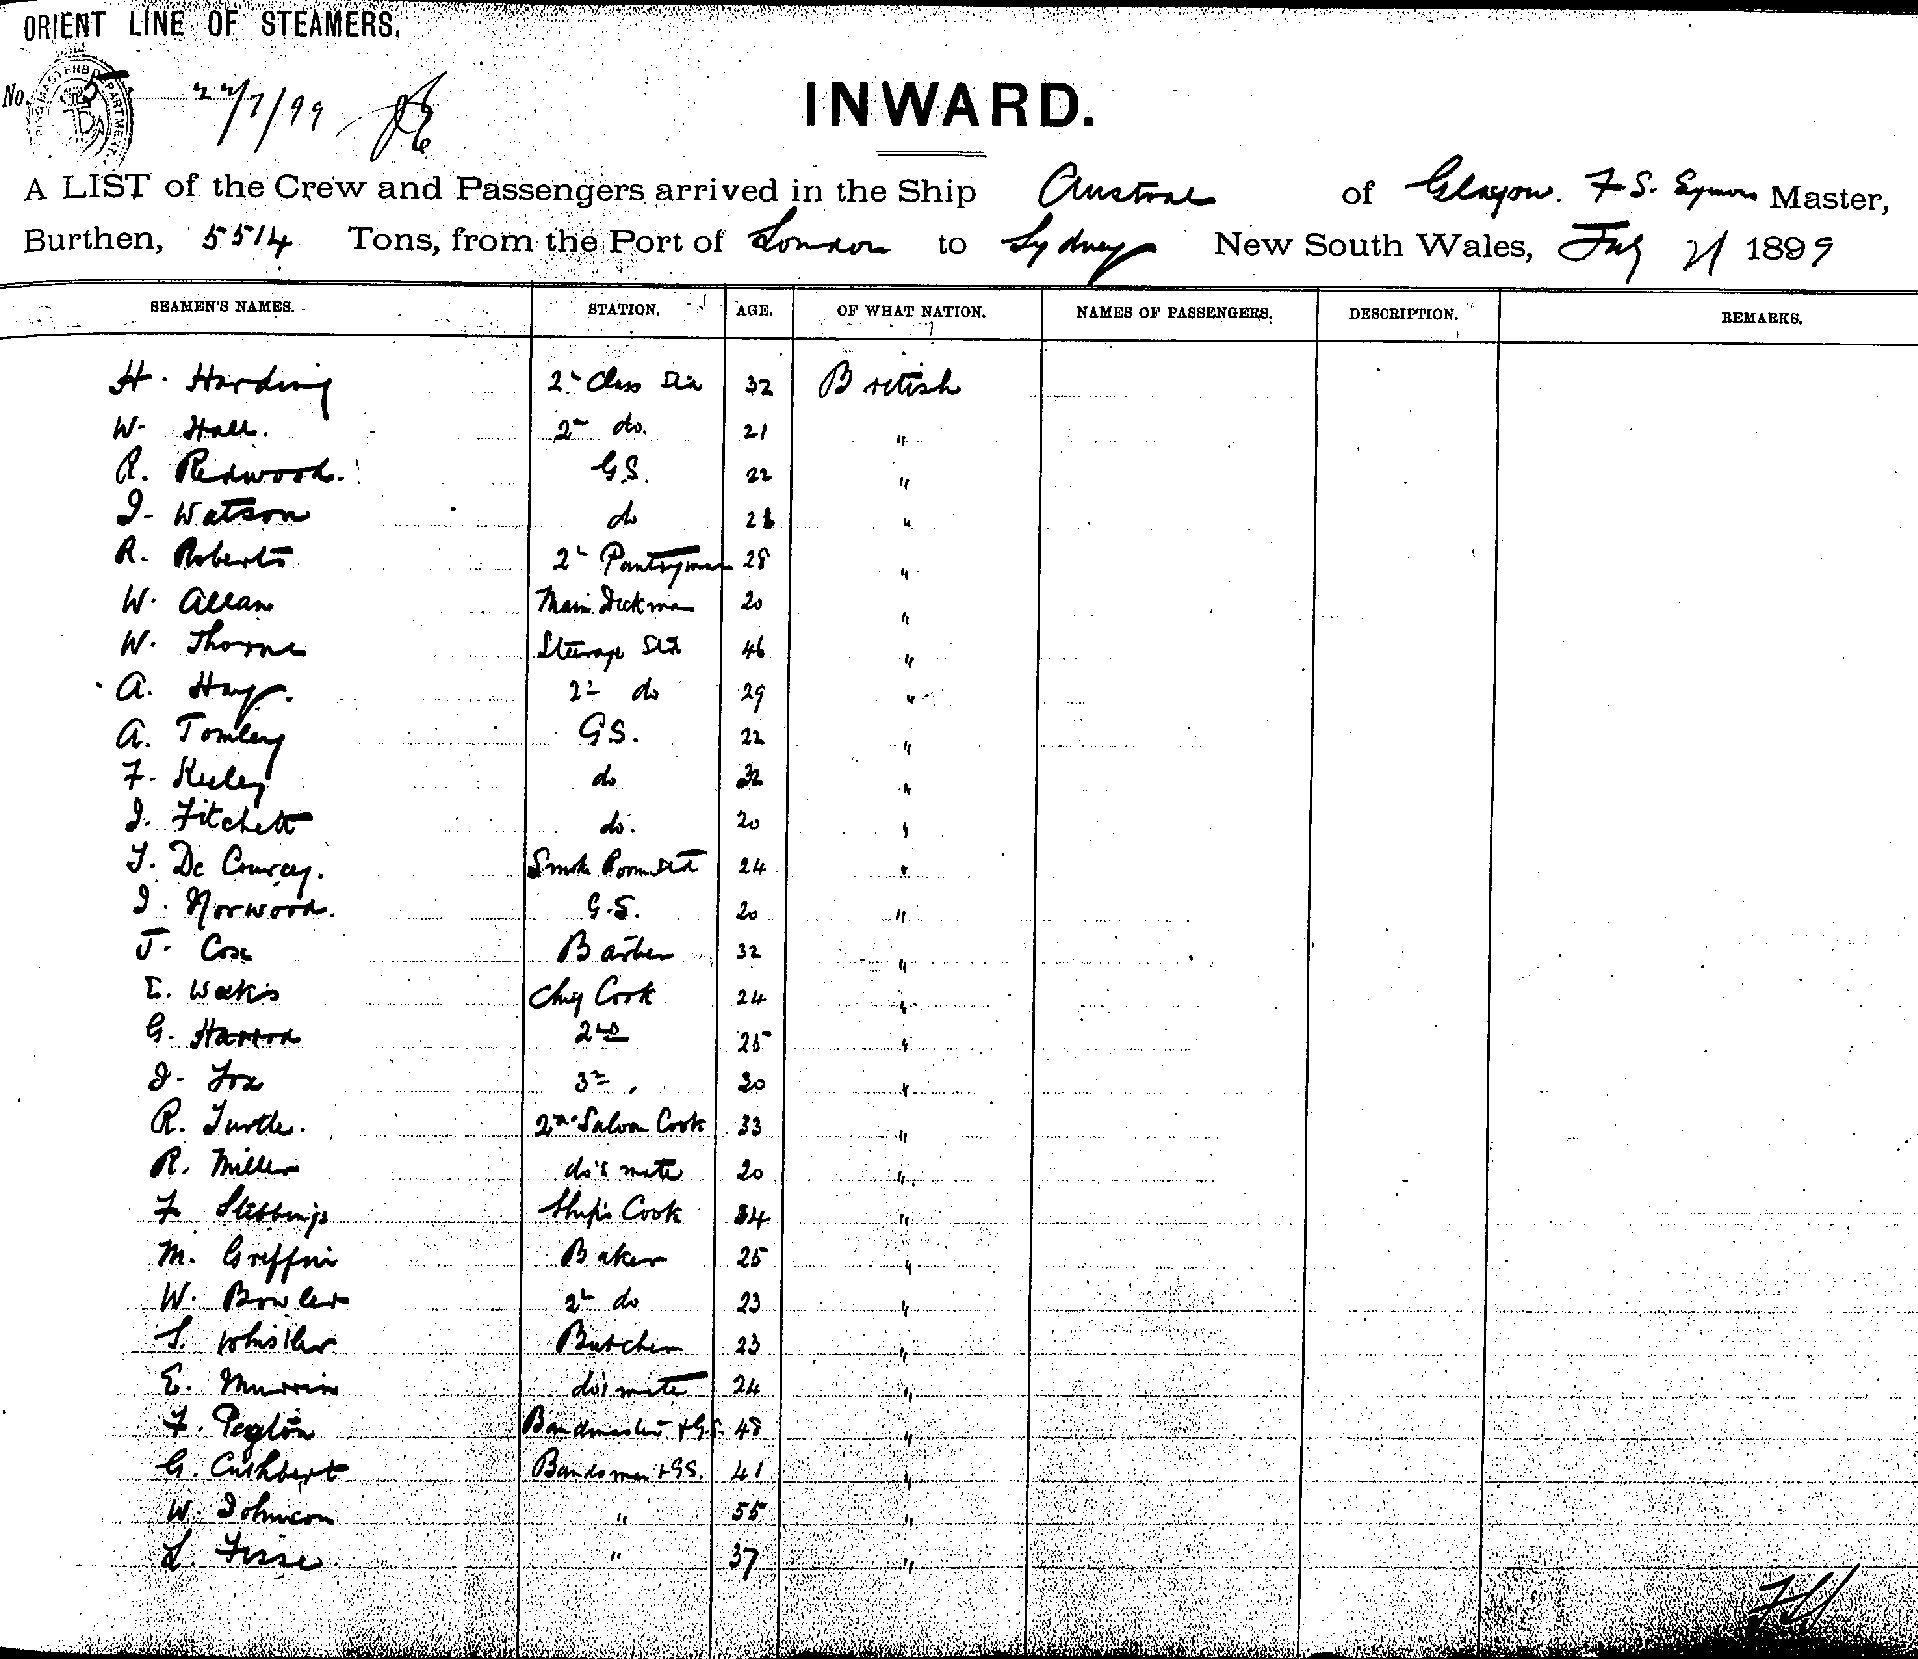 ORIENT LINE OF STEAMERS.
No. 5 22/7/99
INWARD.
A LIST of the Crew and Passengers arrived in the Ship Austral of Glasgow. F S. Symons Master,
Burthen, 5514 Tons, from the Port of London to Sydney New South Wales, July 21 1899
SEAMEN'S NAMES. STATION. AGE. OF WHAT NATION. NAMES OF PASSENGERS. DESCRIPTION. REMARKS.
H. Harding 2n Class Std 32 British
W. Hall. 2n do. 21 "
R. Redwood. G.S. 22 "
J. Watson do "
R. Roberts 2n Pantryman 28 "
W. Allan Main Deckman 20 "
W. Thorne Steerage Std 46 "
A. Hay. 2n do 29 "
A. Tomley GS. 22 "
F. Keeley do 32 "
J. Fitchett do. 20 "
De Smoke Room Std 24 "
J. Norwood. G.S. 20 "
J. Cox Barber 32 "
E. Cook 24 "
G. Harrod 2nd 25 "
J. Fox 3rd " "
R. Turtle. 2nd Saloon Cook 33 "
R. Miller do's mate 20 "
F. Stebbings Ship's Cook 34 "
M. Griffin Baker 25 "
W. Bowler 2n do 23 "
S. Whistler Butcher 23 "
E. Murrin do's mate 24 "
F. Peglon Bandmaster + G.S. 48 "
G. Cuthbert Bandsman + GS. 41 "
W. Johnson " 55 "
L. " 37 "